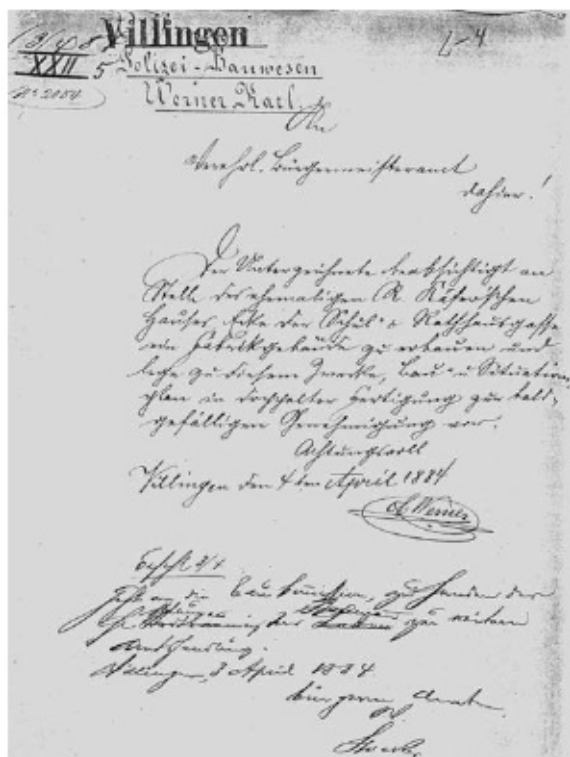 Villingen
XXII 5 Polizei-Bauwesen
No 2054 Werner, Karl.
An
Verehrl. Bürgermeisteramt
dahier!
Der Unterzeichnete beabsichtigt an
Stelle des ehemaligen R. Käfer'schen
Hauses Ecke der Schul- & Rathhausgasse
ein Fabrikgebäude zu erbauen und
lege zu diesem Zwecke, Bau- u Situations-
plan in doppelter Fertigung zur bald-
gefälligen Genehmigung vor.
Achtungsvoll
Villingen den 4ten April 1884
C. Werner
Beschl.
Geht an die Baukommission, zu Handen des
zur weitern
Amtshandlung.
Villingen, 3 April 1884
Bürgerm. Amt.